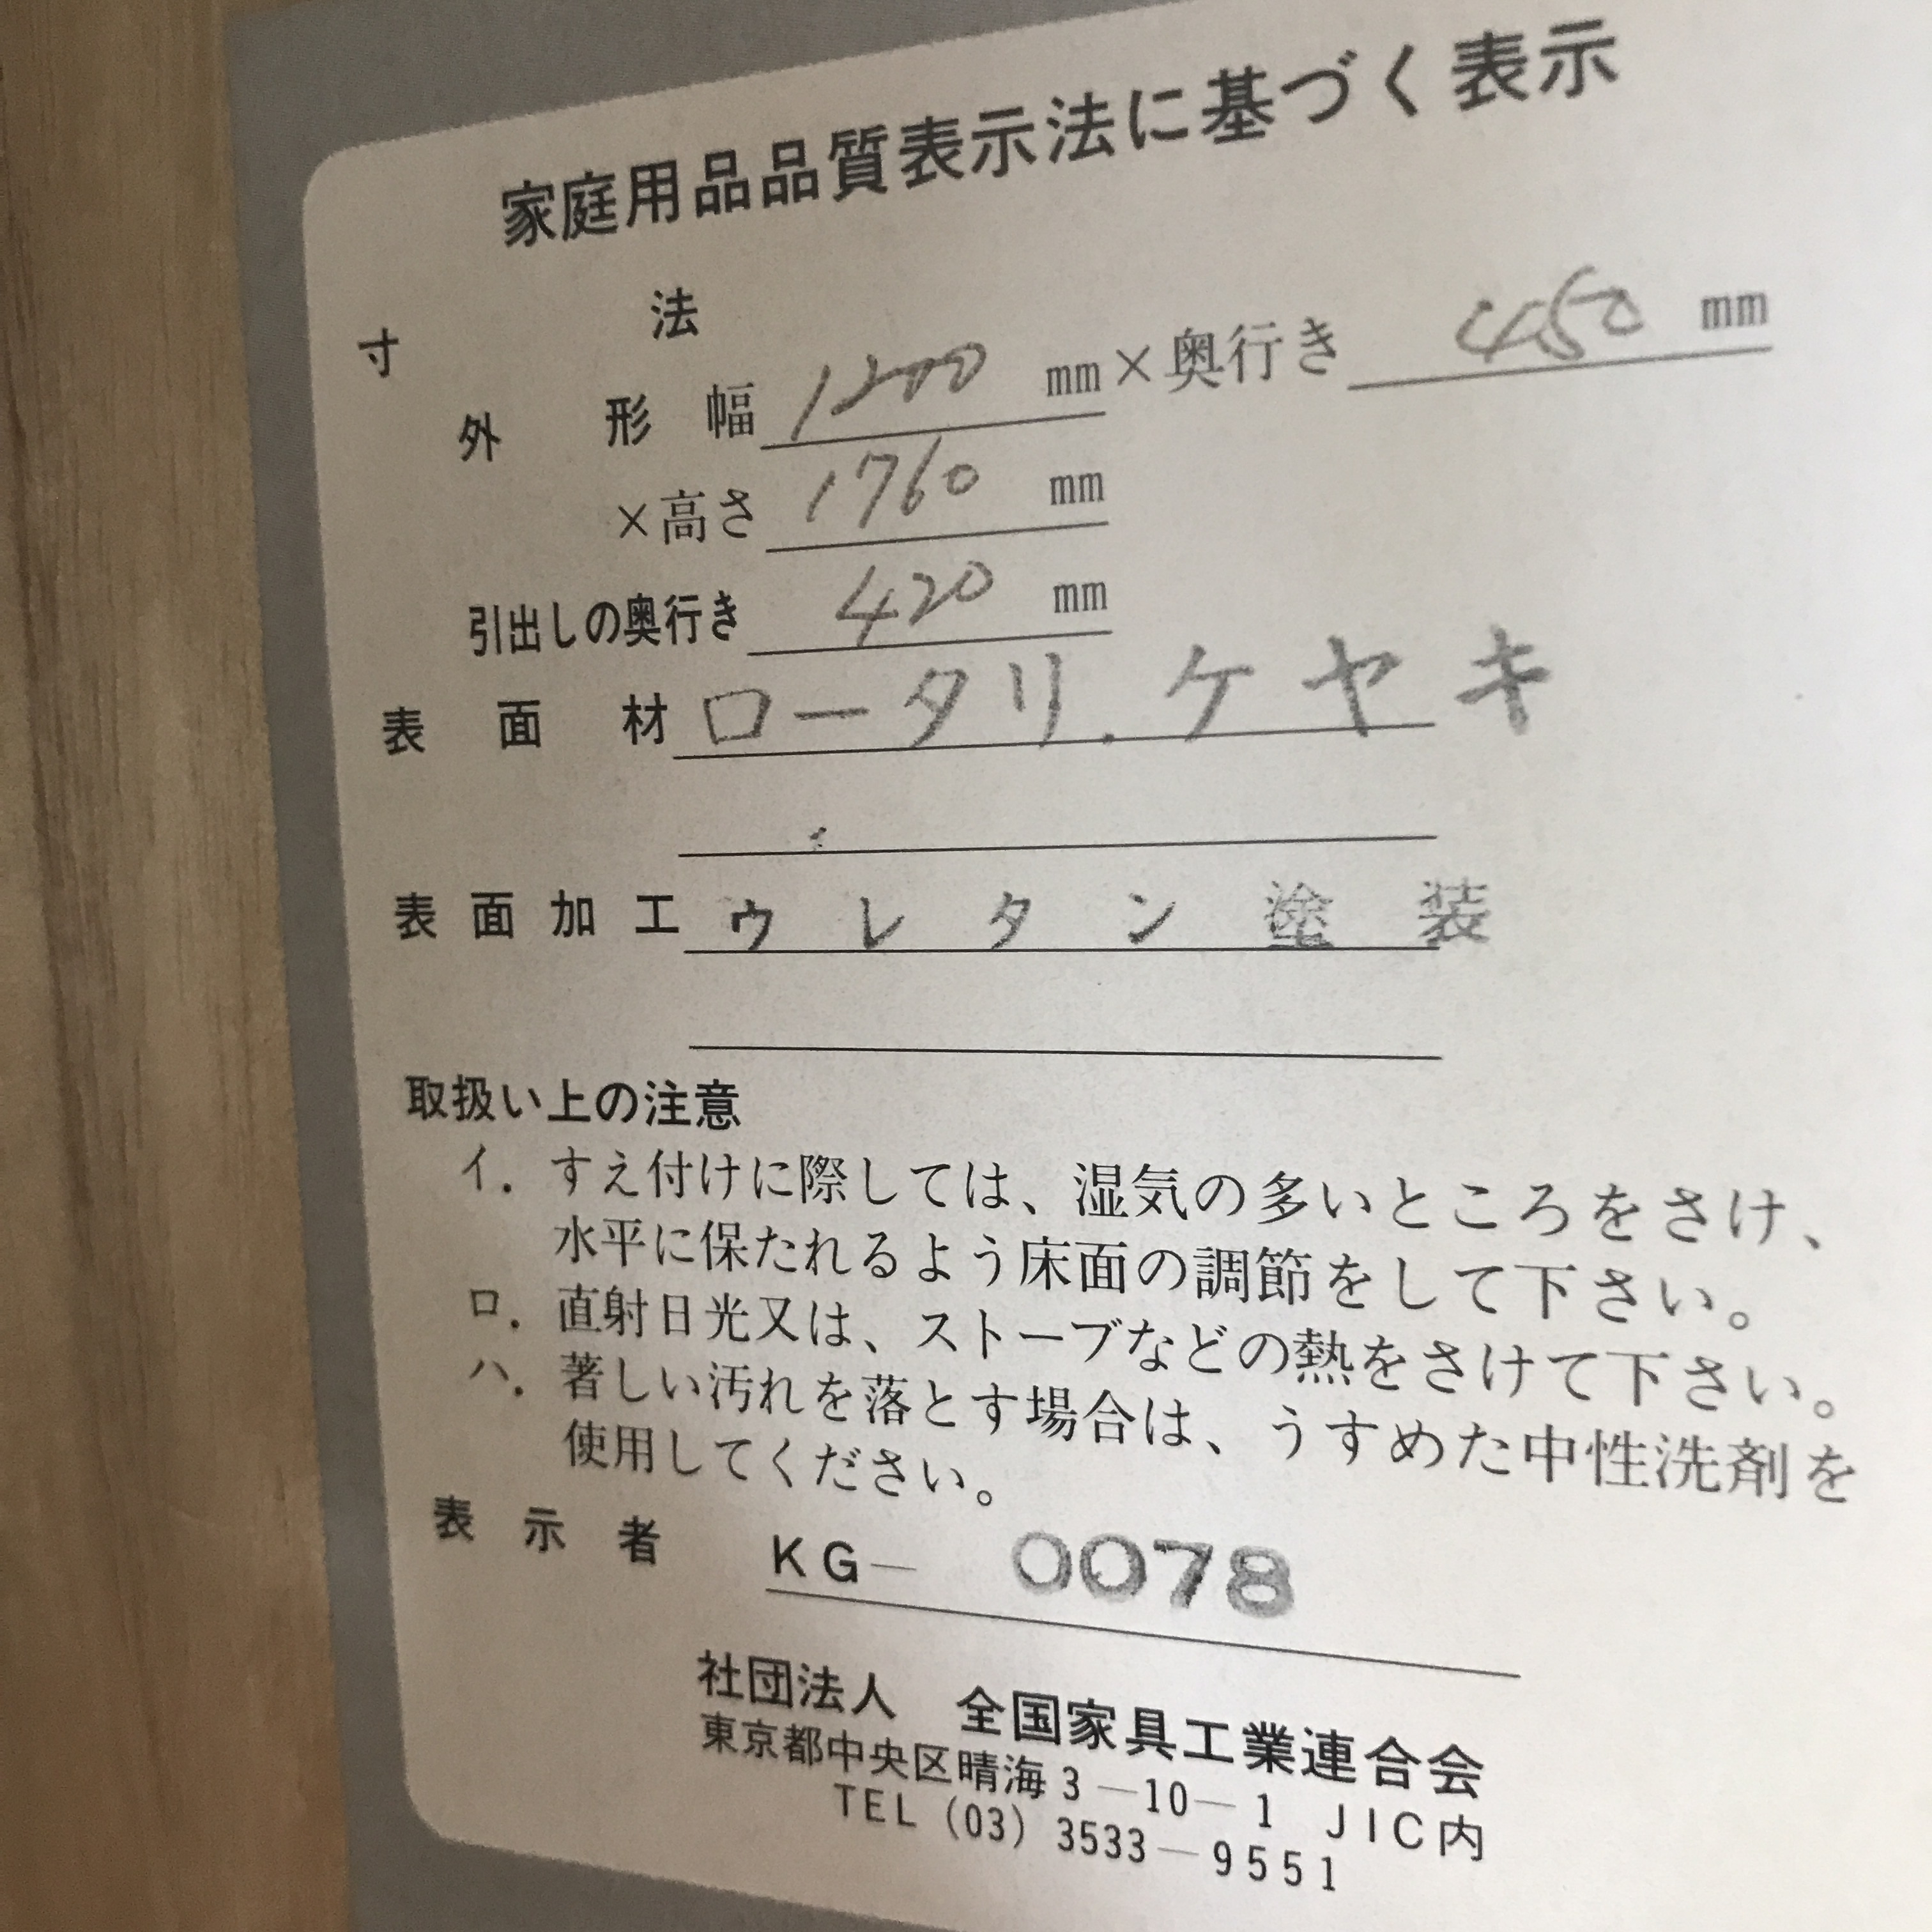 家庭用品品質表示法に基づく表示
寸法
外形幅 1200 mm×奥行き 450 mm
×高さ 1760 mm
引出しの奥行き 420 mm
表面材 ロータリ.ケヤキ
表面加工 ウレタン塗装
取扱い上の注意
イ. すえ付けに際しては、湿気の多いところをさけ、
水平に保たれるよう床面の調節をして下さい。
ロ. 直射日光又は、ストーブなどの熱をさけて下さい。
ハ. 著しい汚れを落とす場合は、うすめた中性洗剤を
使用してください。
表示者 KG— 0078
社団法人 全国家具工業連合会
東京都中央区晴海3—10—1 JIC内
TEL (03) 3533—9551